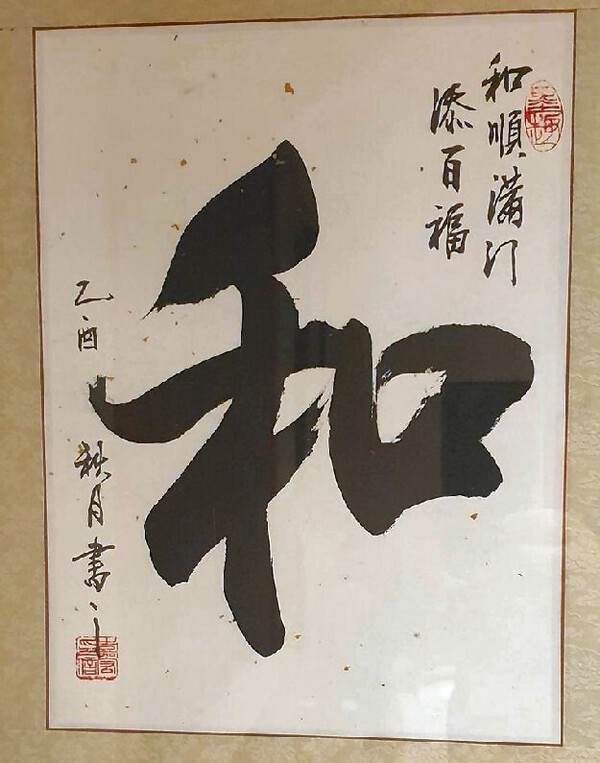 和順滿門
添百福
和
乙酉
秋月書之